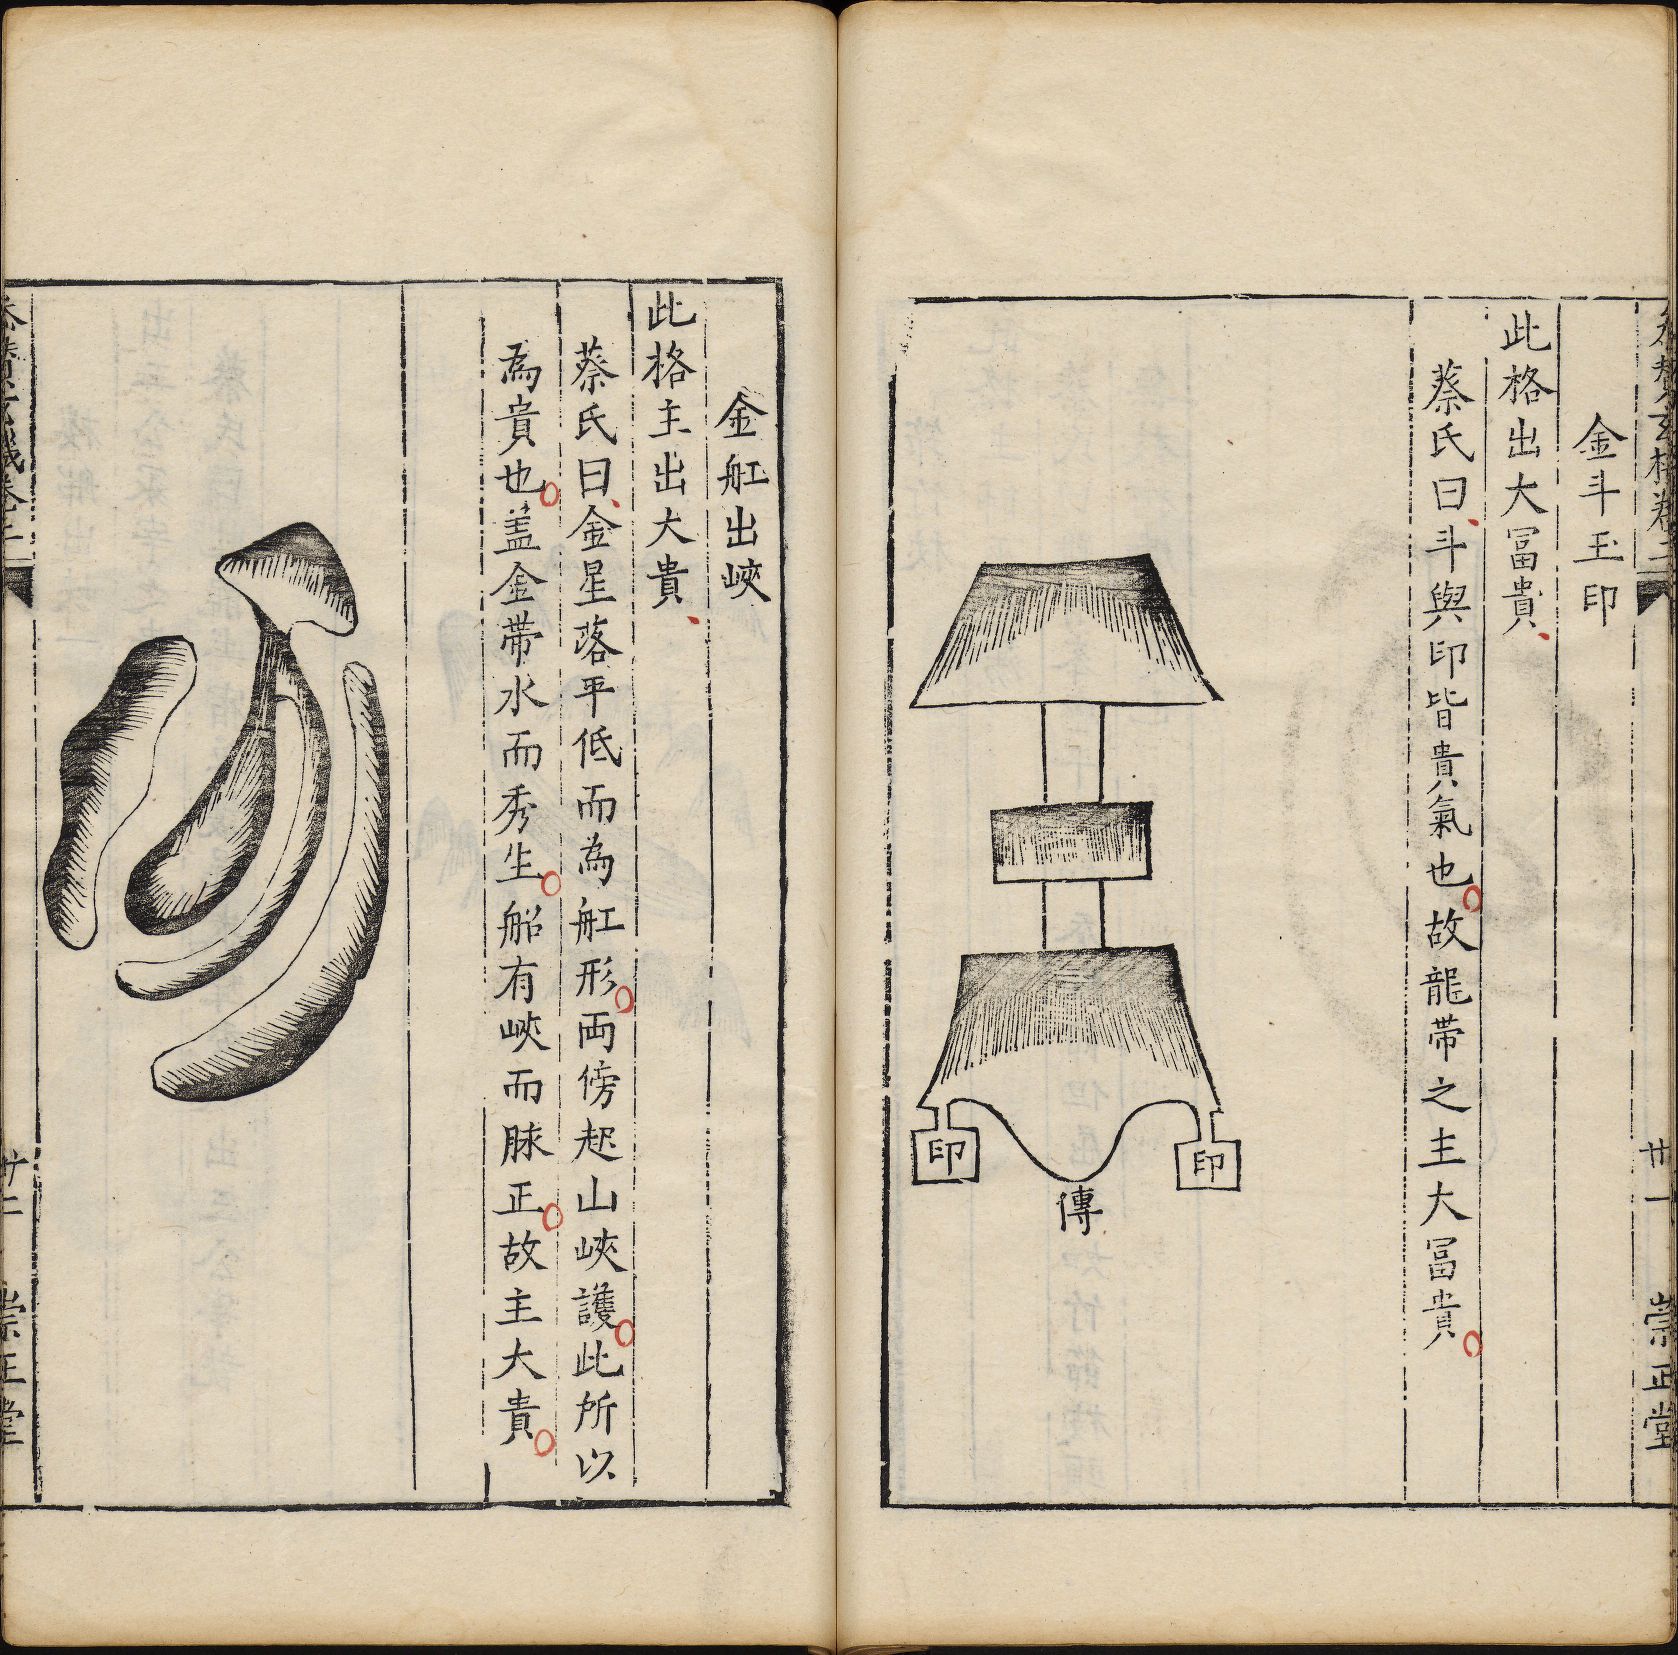 參贊玄機卷二
廿一
崇正堂
金斗玉印
此格出大冨貴
蔡氏曰斗與印皆貴氣也故龍帶之主大冨貴
印
印
傳
金舡出峽
此格主出大貴
蔡氏曰金星落平低而為舡形両傍起山峽護此所以
為貴也盖金帶水而秀生船有峽而脉正故主大貴
廿二
崇正堂